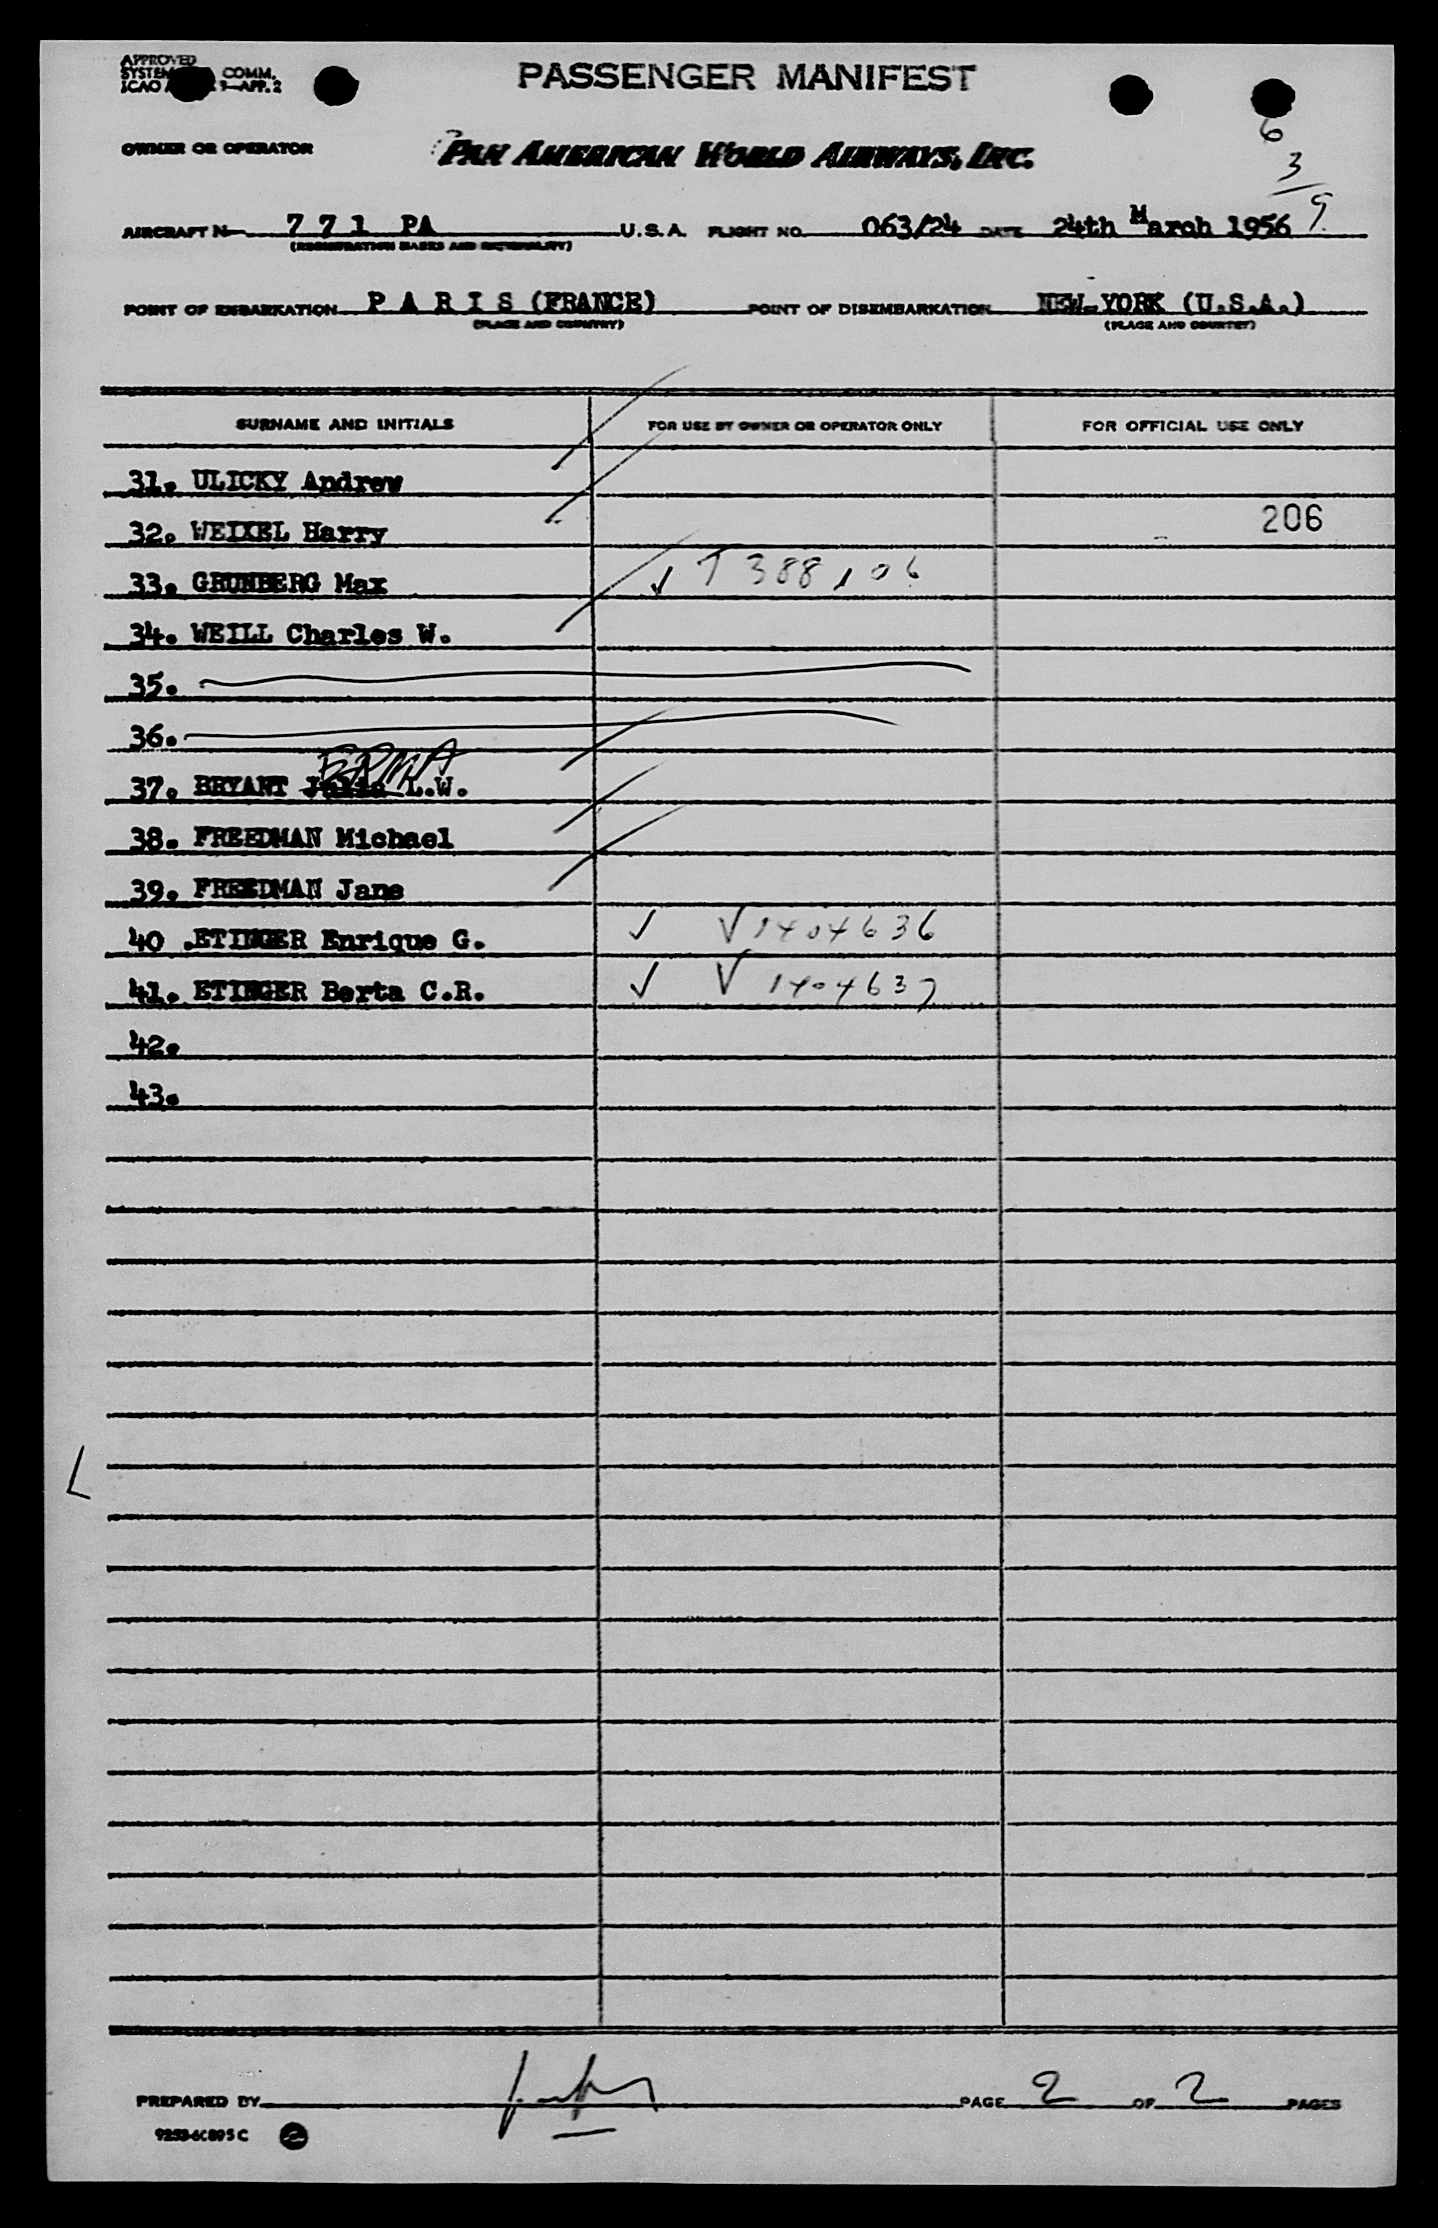 APPROVED
SYSTEM COMM.
ICAO 9—APP. 2
PASSENGER MANIFEST
6
3
9
OWNER OR OPERATOR PAN AMERICAN WORLD AIRWAYS, INC.
AIRCRAFT N 7 7 1 PA U.S.A. FLIGHT NO. 063/24 DATE 24th March 1956
(REGISTRATION MARKS AND NATIONALITY)
POINT OF EMBARKATION P A R I S (FRANCE) POINT OF DISEMBARKATION NEW-YORK (U.S.A.)
(PLACE AND COUNTRY) (PLACE AND COUNTRY)
SURNAME AND INITIALS FOR USE BY OWNER OR OPERATOR ONLY FOR OFFICIAL USE ONLY
31. ULICKY Andrew
32. WEIXEL Harry 206
33. GRUNBERG Max ✓ T 388 106
34. WEILL Charles W.
35.
36.
ERMA
37. BRYANT L.W.
38. FREEDMAN Michael
39. FREEDMAN Jane
40 .ETINGER Enrique G. ✓ V 1404636
41. ETINGER Berta C.R. ✓ V 1404637
42.
43.
L
PREPARED BY PAGE 2 OF 2 PAGES
9253-6C895C